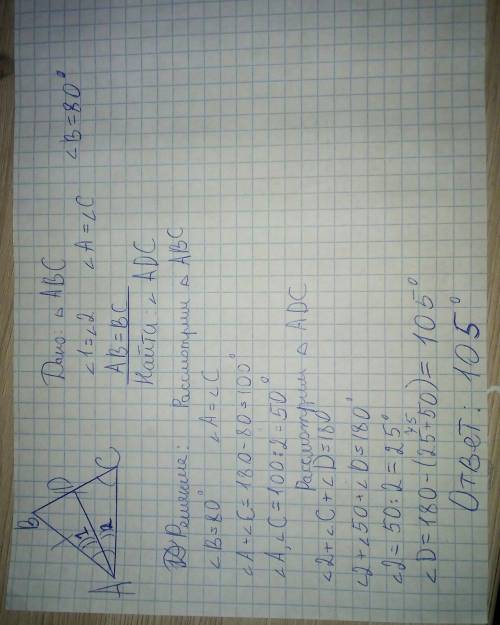 B
D
1
2
A
C
Дано: △ ABC
∠1=∠2 ∠A=∠C ∠B=80°
AB=BC
Найти: ∠ ADC
Решение: Рассмотрим △ ABC
∠B=80° ∠A=∠C
∠A+∠C=180-80=100°
∠A,∠C=100:2=50°
Рассмотрим △ ADC
∠2+∠C+∠D=180°
∠2+∠50+∠D=180°
∠2=50:2=25°
∠D=180-(25+50)=105°
75
Ответ: 105°